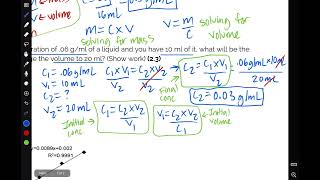 16mL
→ volume
m = C x V
solving for mass
V = m/C
solving for volume
ration of .06 g/ml of a liquid and you have 10 ml of it. what will be the
e the volume to 20 ml? (Show work) (2.3)
C₁ = .06g/mL
V₁ = 10mL
C₂ = ?
V₂ = 20mL
C₁ x V₁ = C₂ x V₂
V₂ V₂
Final conc
C₂ = C₁ x V₁
V₂
C₂ = .06g/mL x 10mL
20mL
C₂ = 0.03 g/mL
Initial conc
C₁ = C₂ x V₂
V₁
V₁ = C₂ x V₂
C₁
Initial volume
0.0089x+0.002
R² = 0.9991